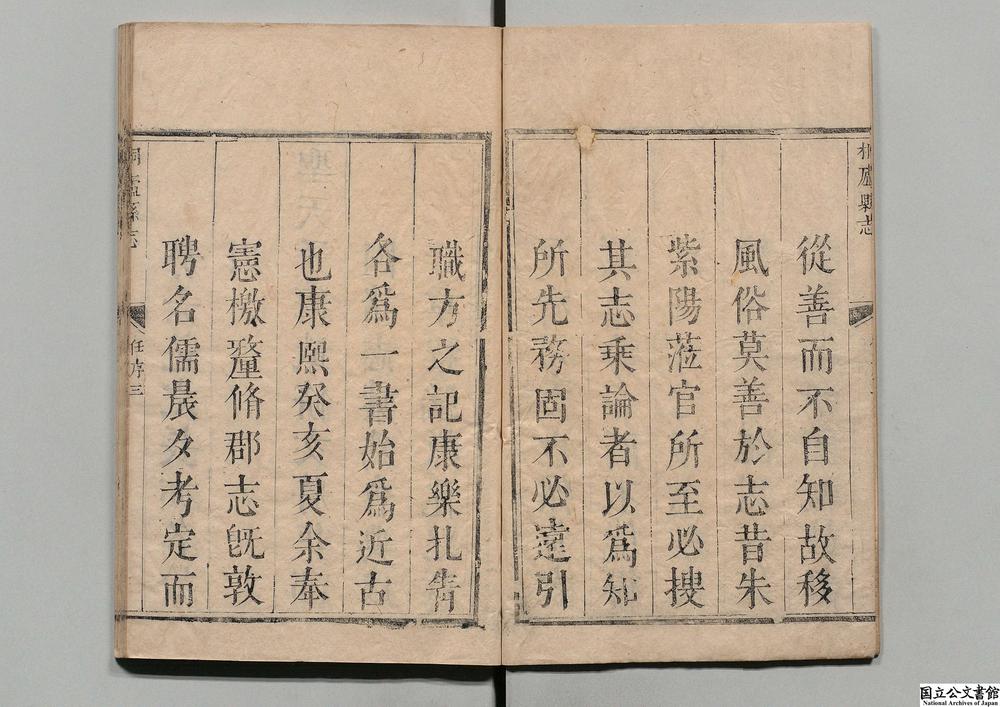 桐廬縣志
從善而不自知故移
風俗莫善於志昔朱
紫陽蒞官所至必搜
其志乘論者以爲知
所先務固不必遠引
職方之記康樂扎靑
各爲一書始爲近古
也康熙癸亥夏余奉
憲檄釐脩郡志旣敦
聘名儒晨夕考定而
桐廬縣志
任序三
国立公文書館
National Archives of Japan